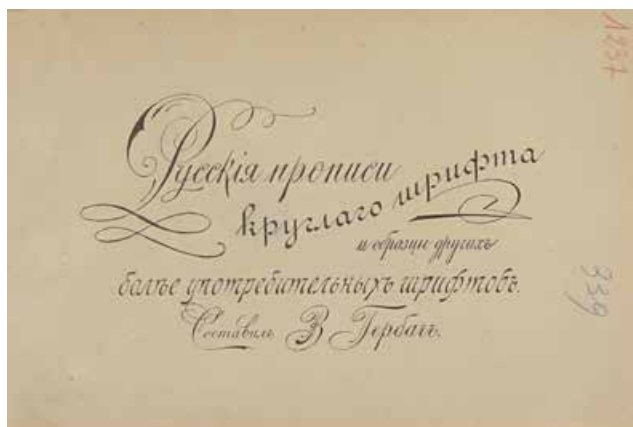 1237
Русскія прописи
круглаго шрифта
и образцы другихъ
болѣе употребительныхъ шрифтовъ.
Составилъ В Гербачъ.
339